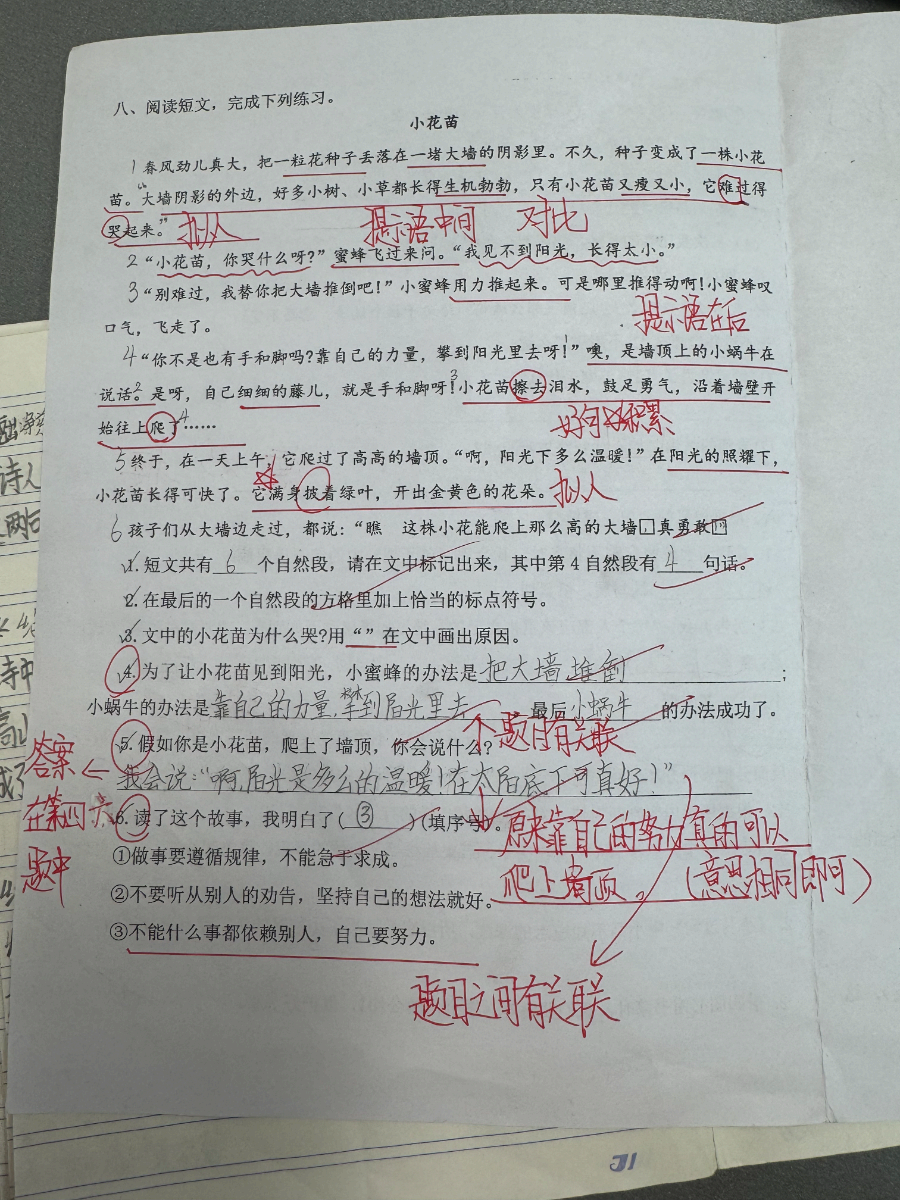 八、阅读短文，完成下列练习。
小花苗
1 春风劲儿真大，把一粒花种子丢落在一堵大墙的阴影里。不久，种子变成了一株小花
苗。“大墙阴影的外边，好多小树、小草都长得生机勃勃，只有小花苗又瘦又小，它难过得
哭起来。”
拟人 提示语中间 对比
2 “小花苗，你哭什么呀?”蜜蜂飞过来问。“我见不到阳光，长得太小。”
3 “别难过，我替你把大墙推倒吧!”小蜜蜂用力推起来。可是哪里推得动啊!小蜜蜂叹
口气，飞走了。
提示语在后
4 “你不是也有手和脚吗?靠自己的力量，攀到阳光里去呀!1”噢，是墙顶上的小蜗牛在
说话。2是呀，自己细细的藤儿，就是手和脚呀!3小花苗擦去泪水，鼓足勇气，沿着墙壁开
始往上爬了4……
好句 积累
5 终于，在一天上午，它爬过了高高的墙顶。“啊，阳光下多么温暖!”在阳光的照耀下，
小花苗长得可快了。它满身披着绿叶，开出金黄色的花朵。
拟人
6 孩子们从大墙边走过，都说：“瞧 这株小花能爬上那么高的大墙□真勇敢□
1. 短文共有 6 个自然段，请在文中标记出来，其中第 4 自然段有 4 句话。
2. 在最后的一个自然段的方格里加上恰当的标点符号。
3. 文中的小花苗为什么哭?用“”在文中画出原因。
4. 为了让小花苗见到阳光，小蜜蜂的办法是 把大墙推倒 ;
小蜗牛的办法是 靠自己的力量，攀到阳光里去 最后 小蜗牛 的办法成功了。
5. 假如你是小花苗，爬上了墙顶，你会说什么?
个题目有关联
我会说：“啊，阳光是多么的温暖！在太阳底下可真好！”
答案
在第四
题中
6. 读了这个故事，我明白了( ③ )(填序号)。
原来靠自己的努力真的可以
爬上墙顶。（意思相同即可）
①做事要遵循规律，不能急于求成。
②不要听从别人的劝告，坚持自己的想法就好。
③不能什么事都依赖别人，自己要努力。
题目之间有关联
诗人